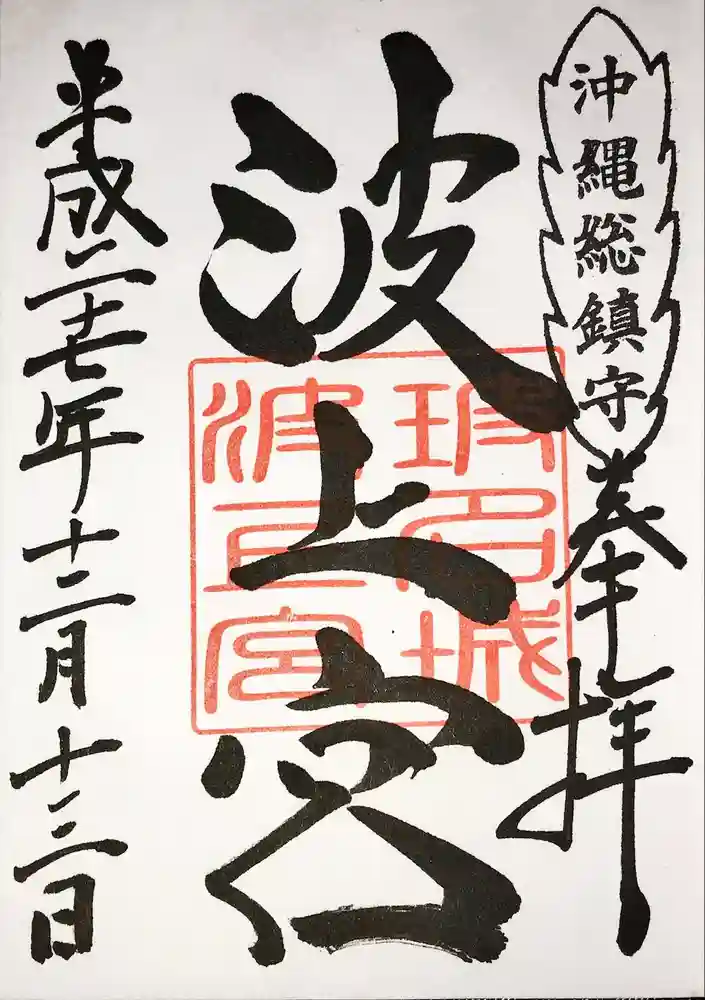 沖縄総鎮守
奉拝
波上宮
玻名城
波上宮
平成二十七年十二月十三日